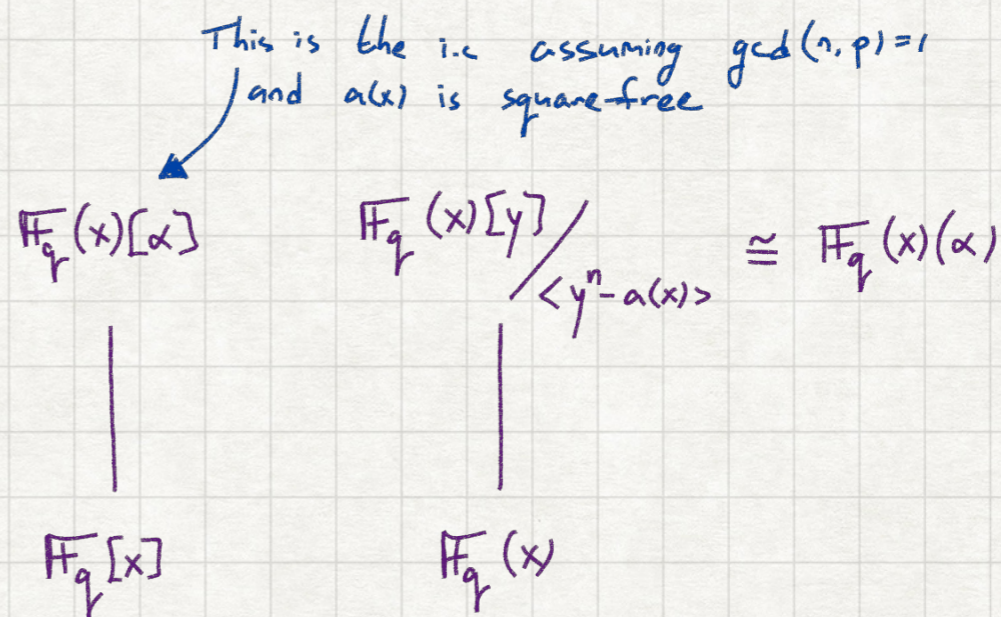 This is the i.c assuming gcd(n,p)=1
and a(x) is square-free
𝔽_q(x)[α] 𝔽_q(x)[y]/<yⁿ-a(x)> ≅ 𝔽_q(x)(α)
𝔽_q[x] 𝔽_q(x)